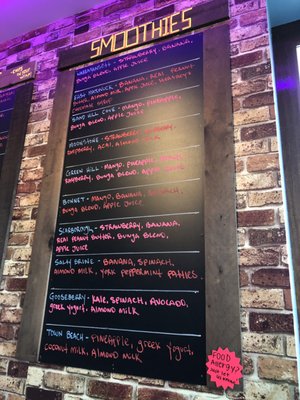 SMOOTHIES
NARRAGANSETT - STRAWBERRY, BANANA,
BUNYA BLEND, APPLE JUICE
EAST MATUNUCK - BANANA, REAL PEANUT
BUTTER, ALMOND MILK,
SAND HILL COVE - MANGO, PINEAPPLE,
BUNYA BLEND, APPLE JUICE
MOONSTONE - STRAWBERRY,
RASPBERRY, ACAI, ALMOND MILK
GREEN HILL - MANGO, PINEAPPLE,
RASPBERRY, BUNYA BLEND, APPLE JUICE
BONNET - MANGO, BANANA,
BUNYA BLEND, APPLE JUICE
SCARBOROUGH - STRAWBERRY, BANANA,
REAL PEANUT BUTTER, BUNYA BLEND,
APPLE JUICE
SALTY BRINE - BANANA, SPINACH,
ALMOND MILK, YORK PEPPERMINT PATTIES.
GOOSEBERRY - KALE, SPINACH, AVOCADO,
GREEK YOGURT, ALMOND MILK
TOWN BEACH - PINEAPPLE, GREEK YOGURT,
COCONUT MILK, ALMOND MILK
FOOD
Allergy?